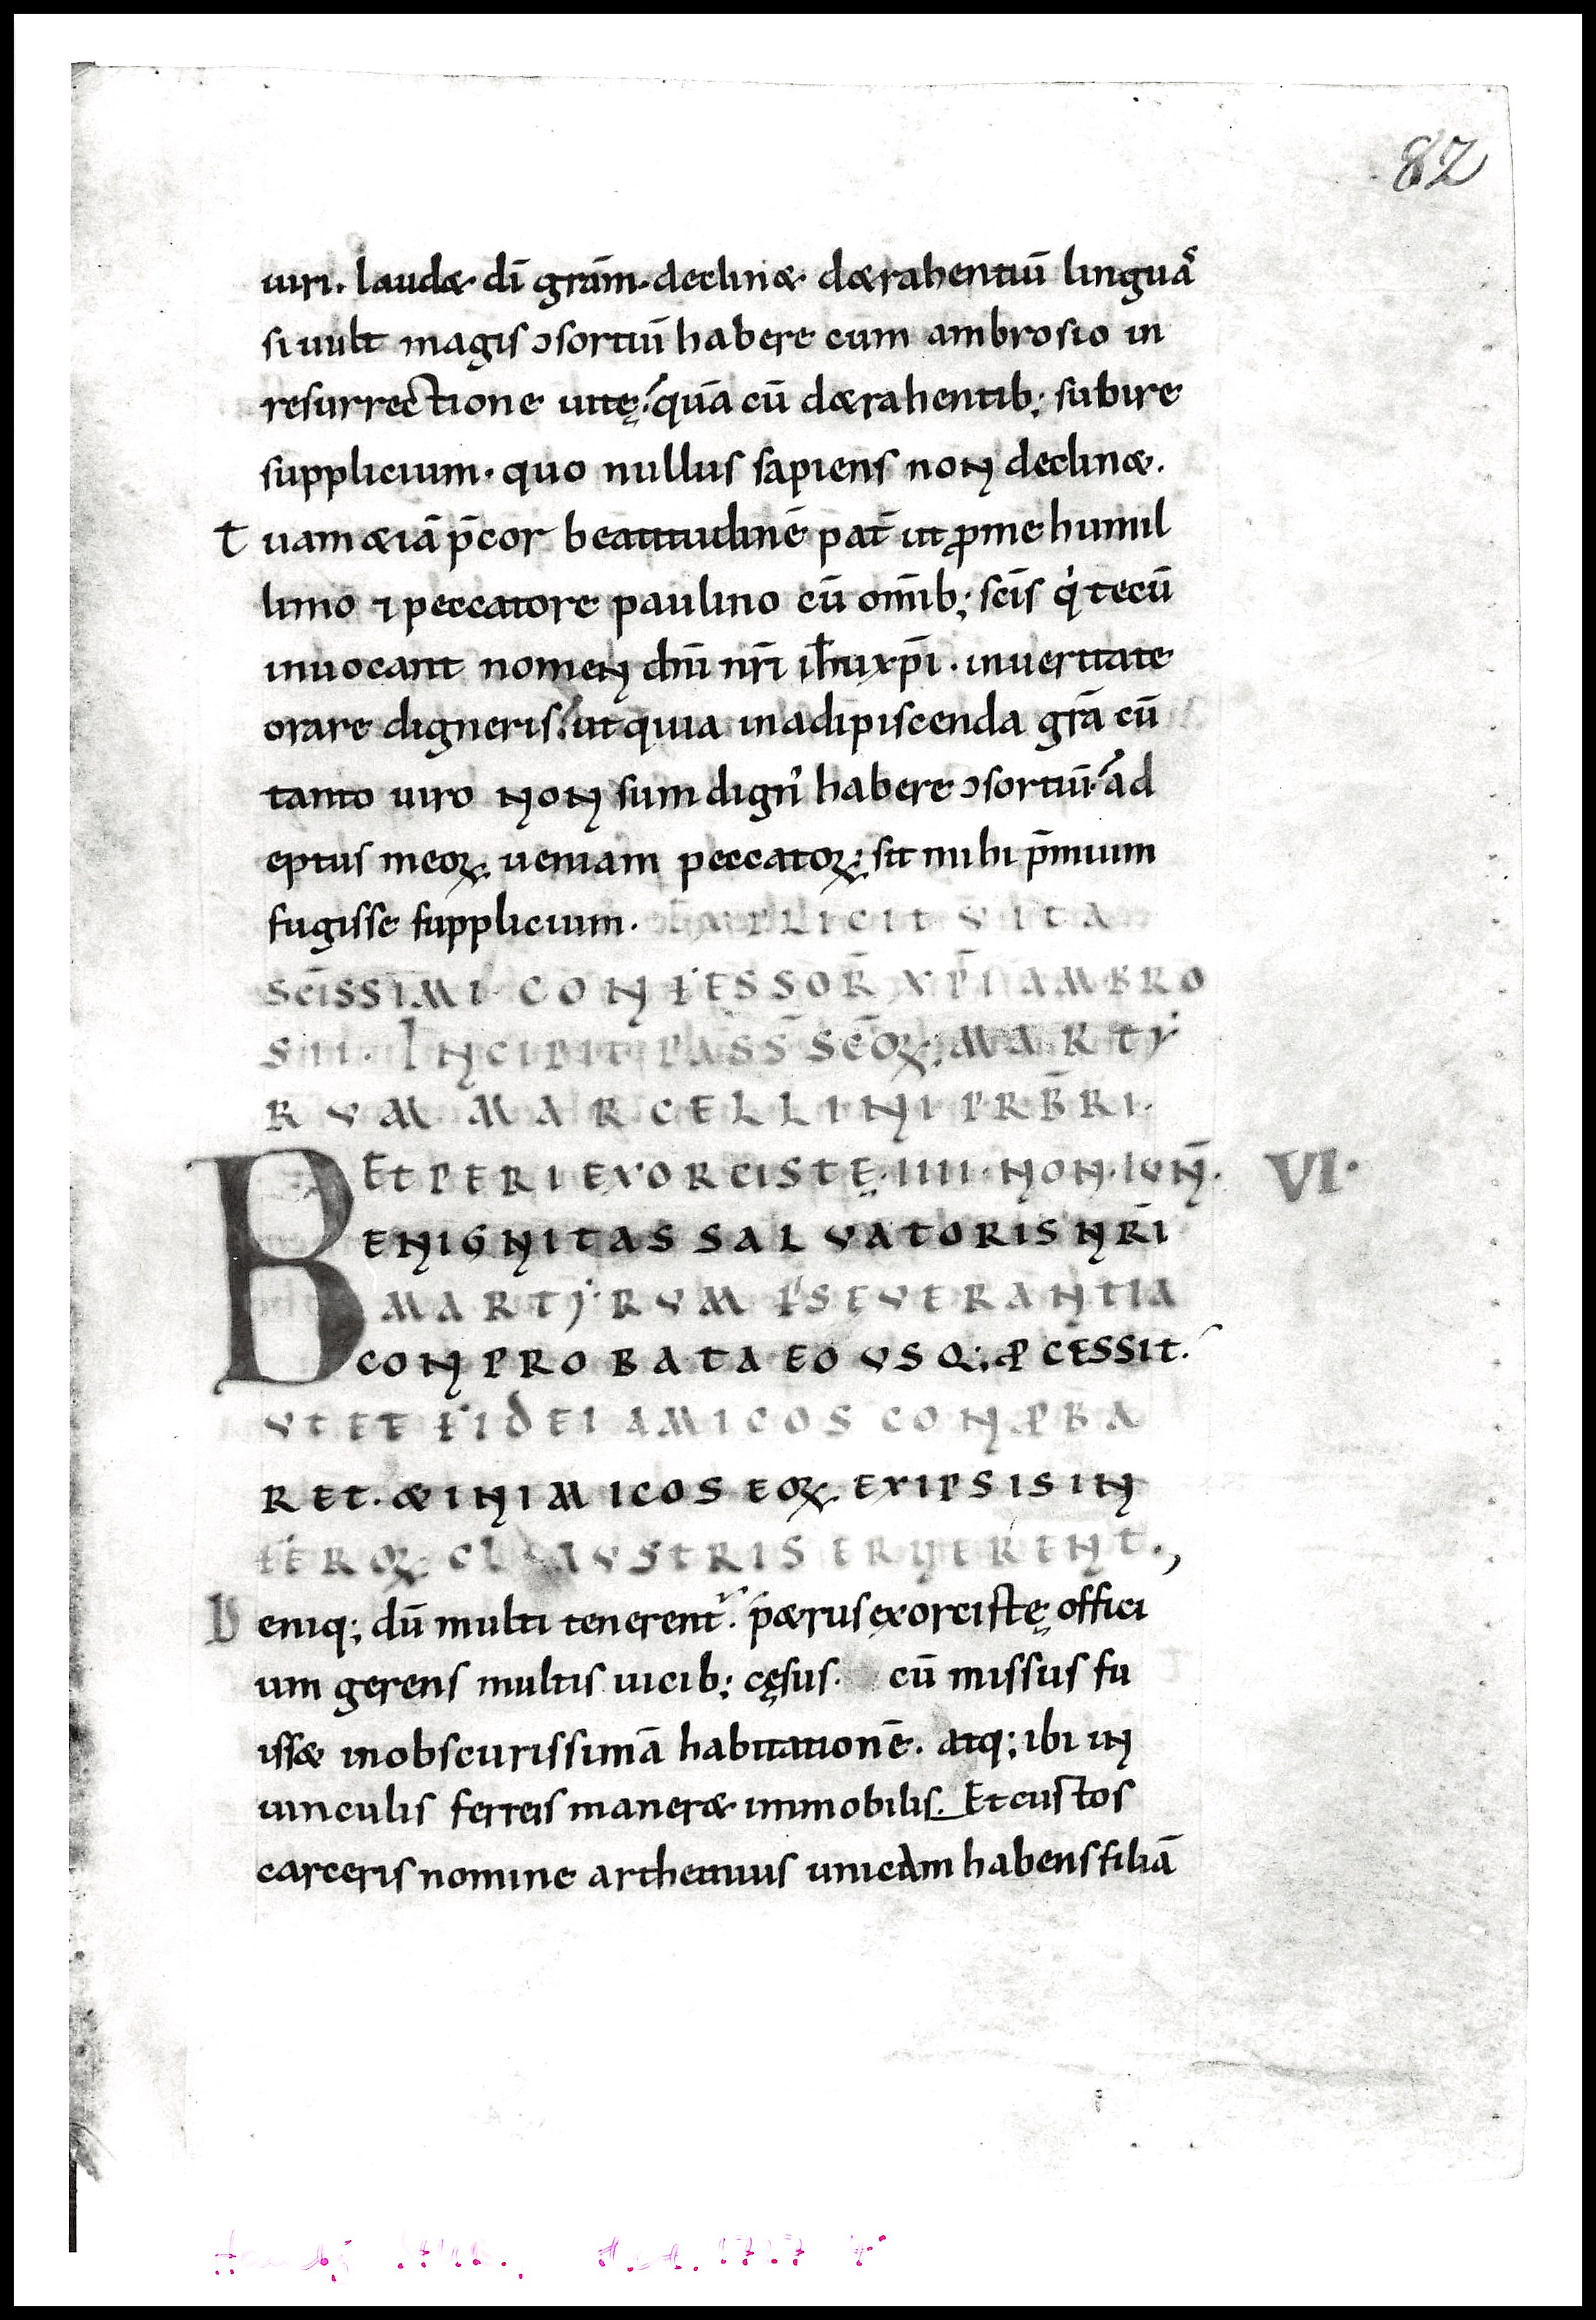 82
uiri. laudæ dī grām. declinæ dærahentiū linguaſ
si uult magis ɔsortiū habere cum ambrosio in
resurrectione uitę. quā cū dærahentib; subire
supplicium. quo nullus sapiens non declinæ.
t uam æiā p̄cor beatitudinē pat̄ ut ꝓme humil
limo ⁊ peccatore paulino cū om̄ib; sc̄is qi tecū
inuocant nomen dn̄i nr̄i ih̄uxp̄i. inueritate
orare digneris. ut quia inadipiscenda grā cū
tanto uiro non sum dign' habere ɔsortiū. ad
eptus meoꝝ ueniam peccatoꝝ; sit mihi p̄mium
fugisse supplicium. EXPLICIT VITA
SC̄ISSIMI CONFESSOR̄ XP̄I AMBRO
SII. INCIPIT PASS̄ SC̄OꝜ; MARTY
RVM MARCELLINI PRB̄RI.
ET PETRI EXORCISTĘ. IIII. NON. IVN̄. VI.
BENIGNITAS SALVATORIS NR̄I
MARTYRVM ꝐSEVERANTIA
CONPROBATA EO VSQ; ꝒCESSIT.
VT ET FIDEI AMICOS CONꝒBA
RET. æ INIMICOS EOꝜ EXIPSIS IN
FEROꝜ CLAVSTRIS ERUERENT.,
D eniq; dū multi tenerent. pærus exorcistę offici
um gerens multis uicib; cęsus. cū missus fu
issæ inobscurissimā habitationē. atq; ibi in
uinculis ferreis maneræ immobilis. Et custos
carceris nomine arthemius unicam habens filiā